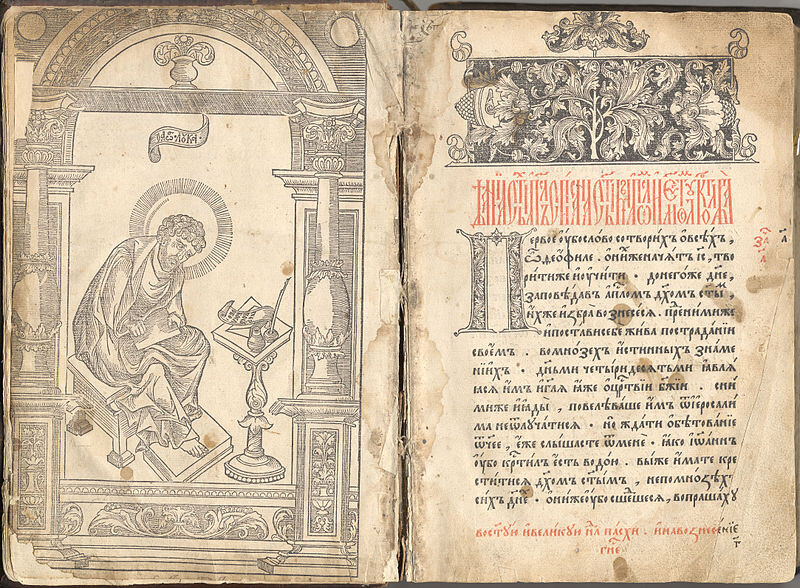 лꙋка
Первое оубо слово сотворихъ ѡвсѣхъ ,
ѽѳеофиле . ѡниⷯже начѧтъ іс҃ , тво
рити же иоучити · донегоже дн҃е ,
заповѣдавъ апⷭ҇ломъ дх҃омъ ст҃ы ,
ихже избра вознесесѧ . преⷣнимиже
ипостависебе жива пострадании
своемъ . вомнозех истинныхъ знаме
нїихъ · дн҃ьми четыридесѧтьми ꙗвлѧꙗ
сѧ имъ игл҃ѧ ꙗже оцрⷭ҇твїи бж҃їи . сни
миже иꙗды , повелѣваше имъ ѿїерⷭ҇али
ма неѿлꙋчатисѧ · но ждати обѣтованїе
ѿчее , еже слышасте ѿмене · ꙗко іѡаннъ
оубо крⷭ҇тилъ есть водою . выже имате кре
ститисѧ дх҃омъ ст҃ымъ , непомнозѣⷯ
сихъ дн҃е · ѡнижеоубо сшеⷣшесѧ , вопрашахꙋ
востꙋю ивеликꙋю нⷣлю пасхи . инавознесенїе
гн҃е